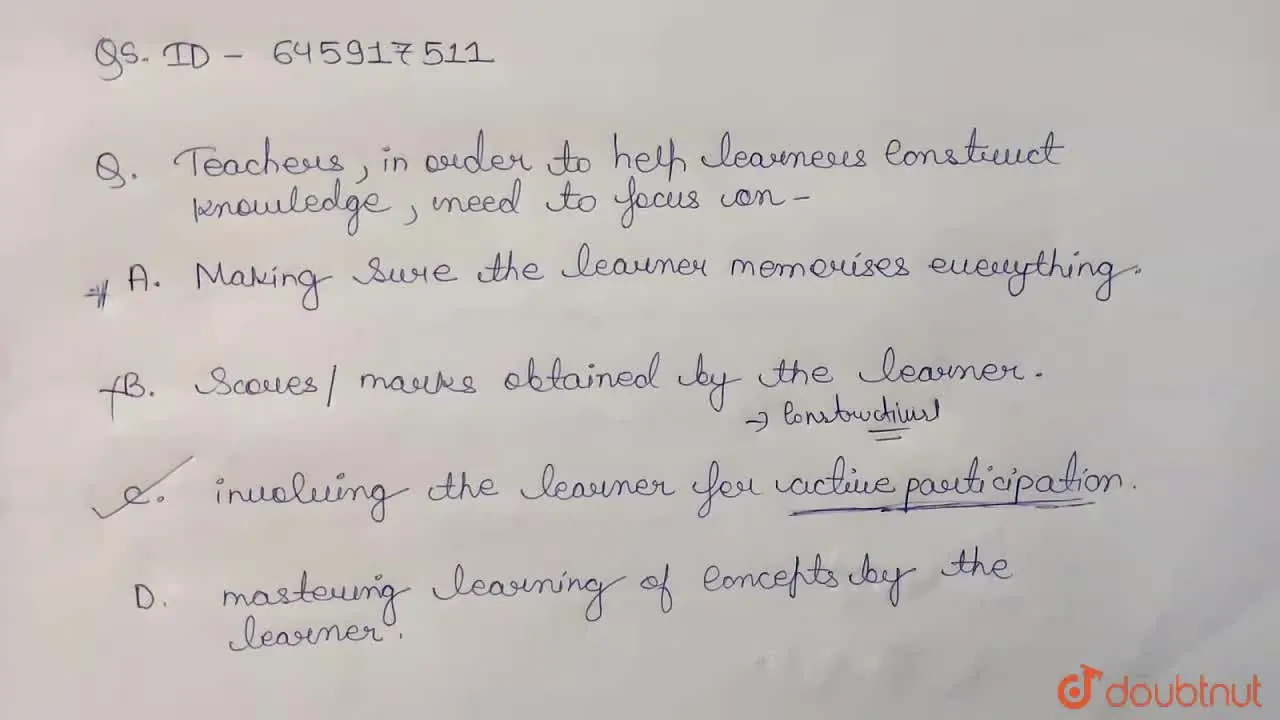 QS. ID - 645917511
Q. Teachers, in order to help learners construct
knowledge, need to focus on -
A. Making sure the learner memorises everything.
B. Scores/ marks obtained by the learner.
→ Constructivist
C. involving the learner for active participation.
D. mastering learning of concepts by the
learner.
doubtnut